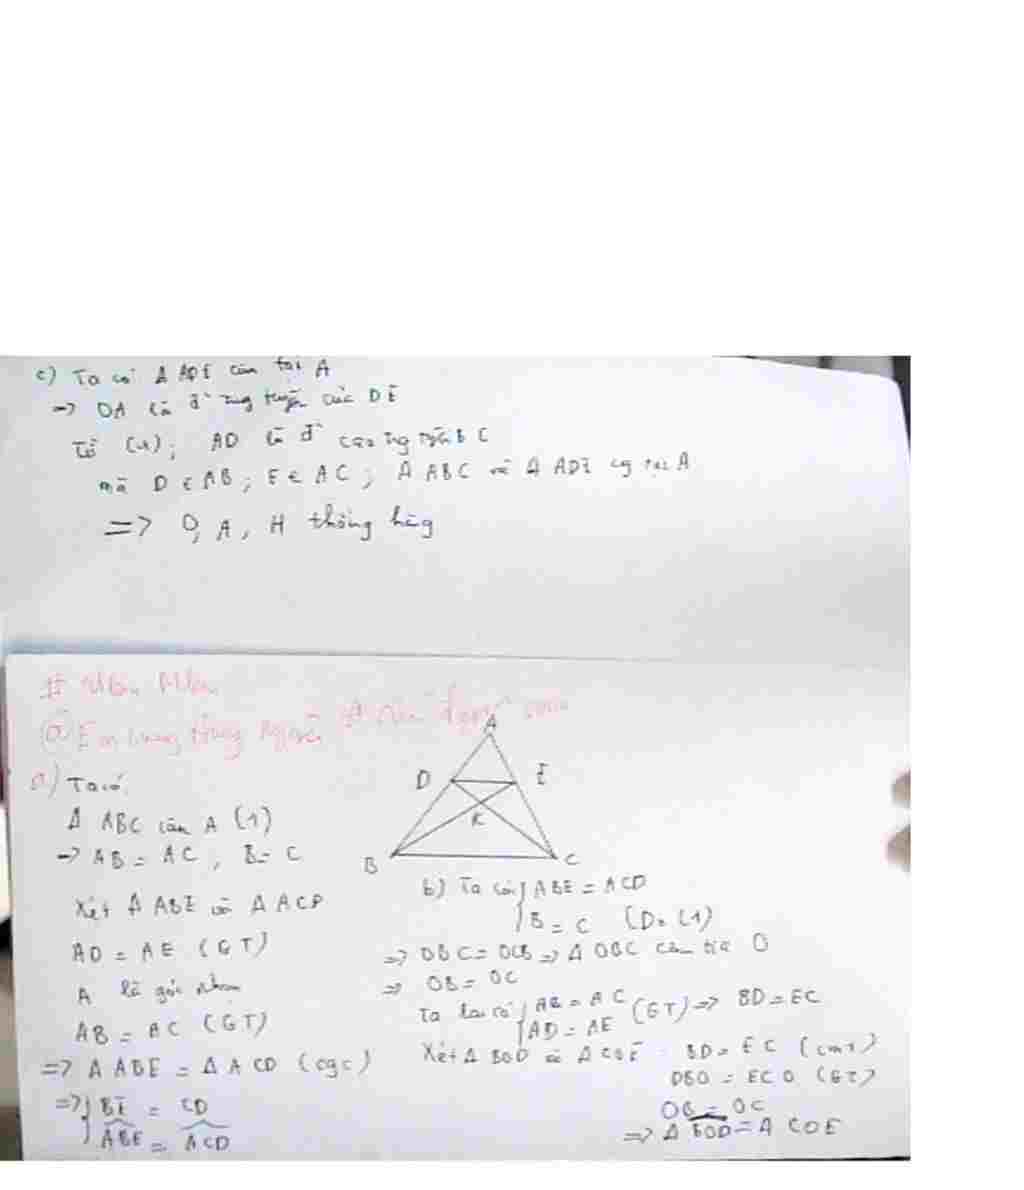 c) Ta có Δ ADE cân tại A
=> OA là đ' trung tuyến của DE
Từ (1); AD là đ' BC
mà D ∈ AB; E ∈ AC; Δ ABC và Δ ADE tại A
=> O, A, H thẳng hàng
#
@Em
A
a) Ta có:
D E
Δ ABC cân A (1)
K
=> AB = AC, B = C
B C
Xét Δ ABE và Δ ACD
AD = AE (GT)
A là góc chung
AB = AC (GT)
=> Δ ABE = Δ ACD (cgc)
=> { BE = CD
ABE = ACD
b) Ta có { ABE = ACD
B = C (1)
=> OBC = OCB => Δ OBC cân tại O
=> OB = OC
Ta lại có { AB = AC
AD = AE (GT) => BD = EC
Xét Δ BOD và Δ COE BD = EC (cmt)
DBO = ECO (GT)
OB = OC
=> Δ BOD = Δ COE